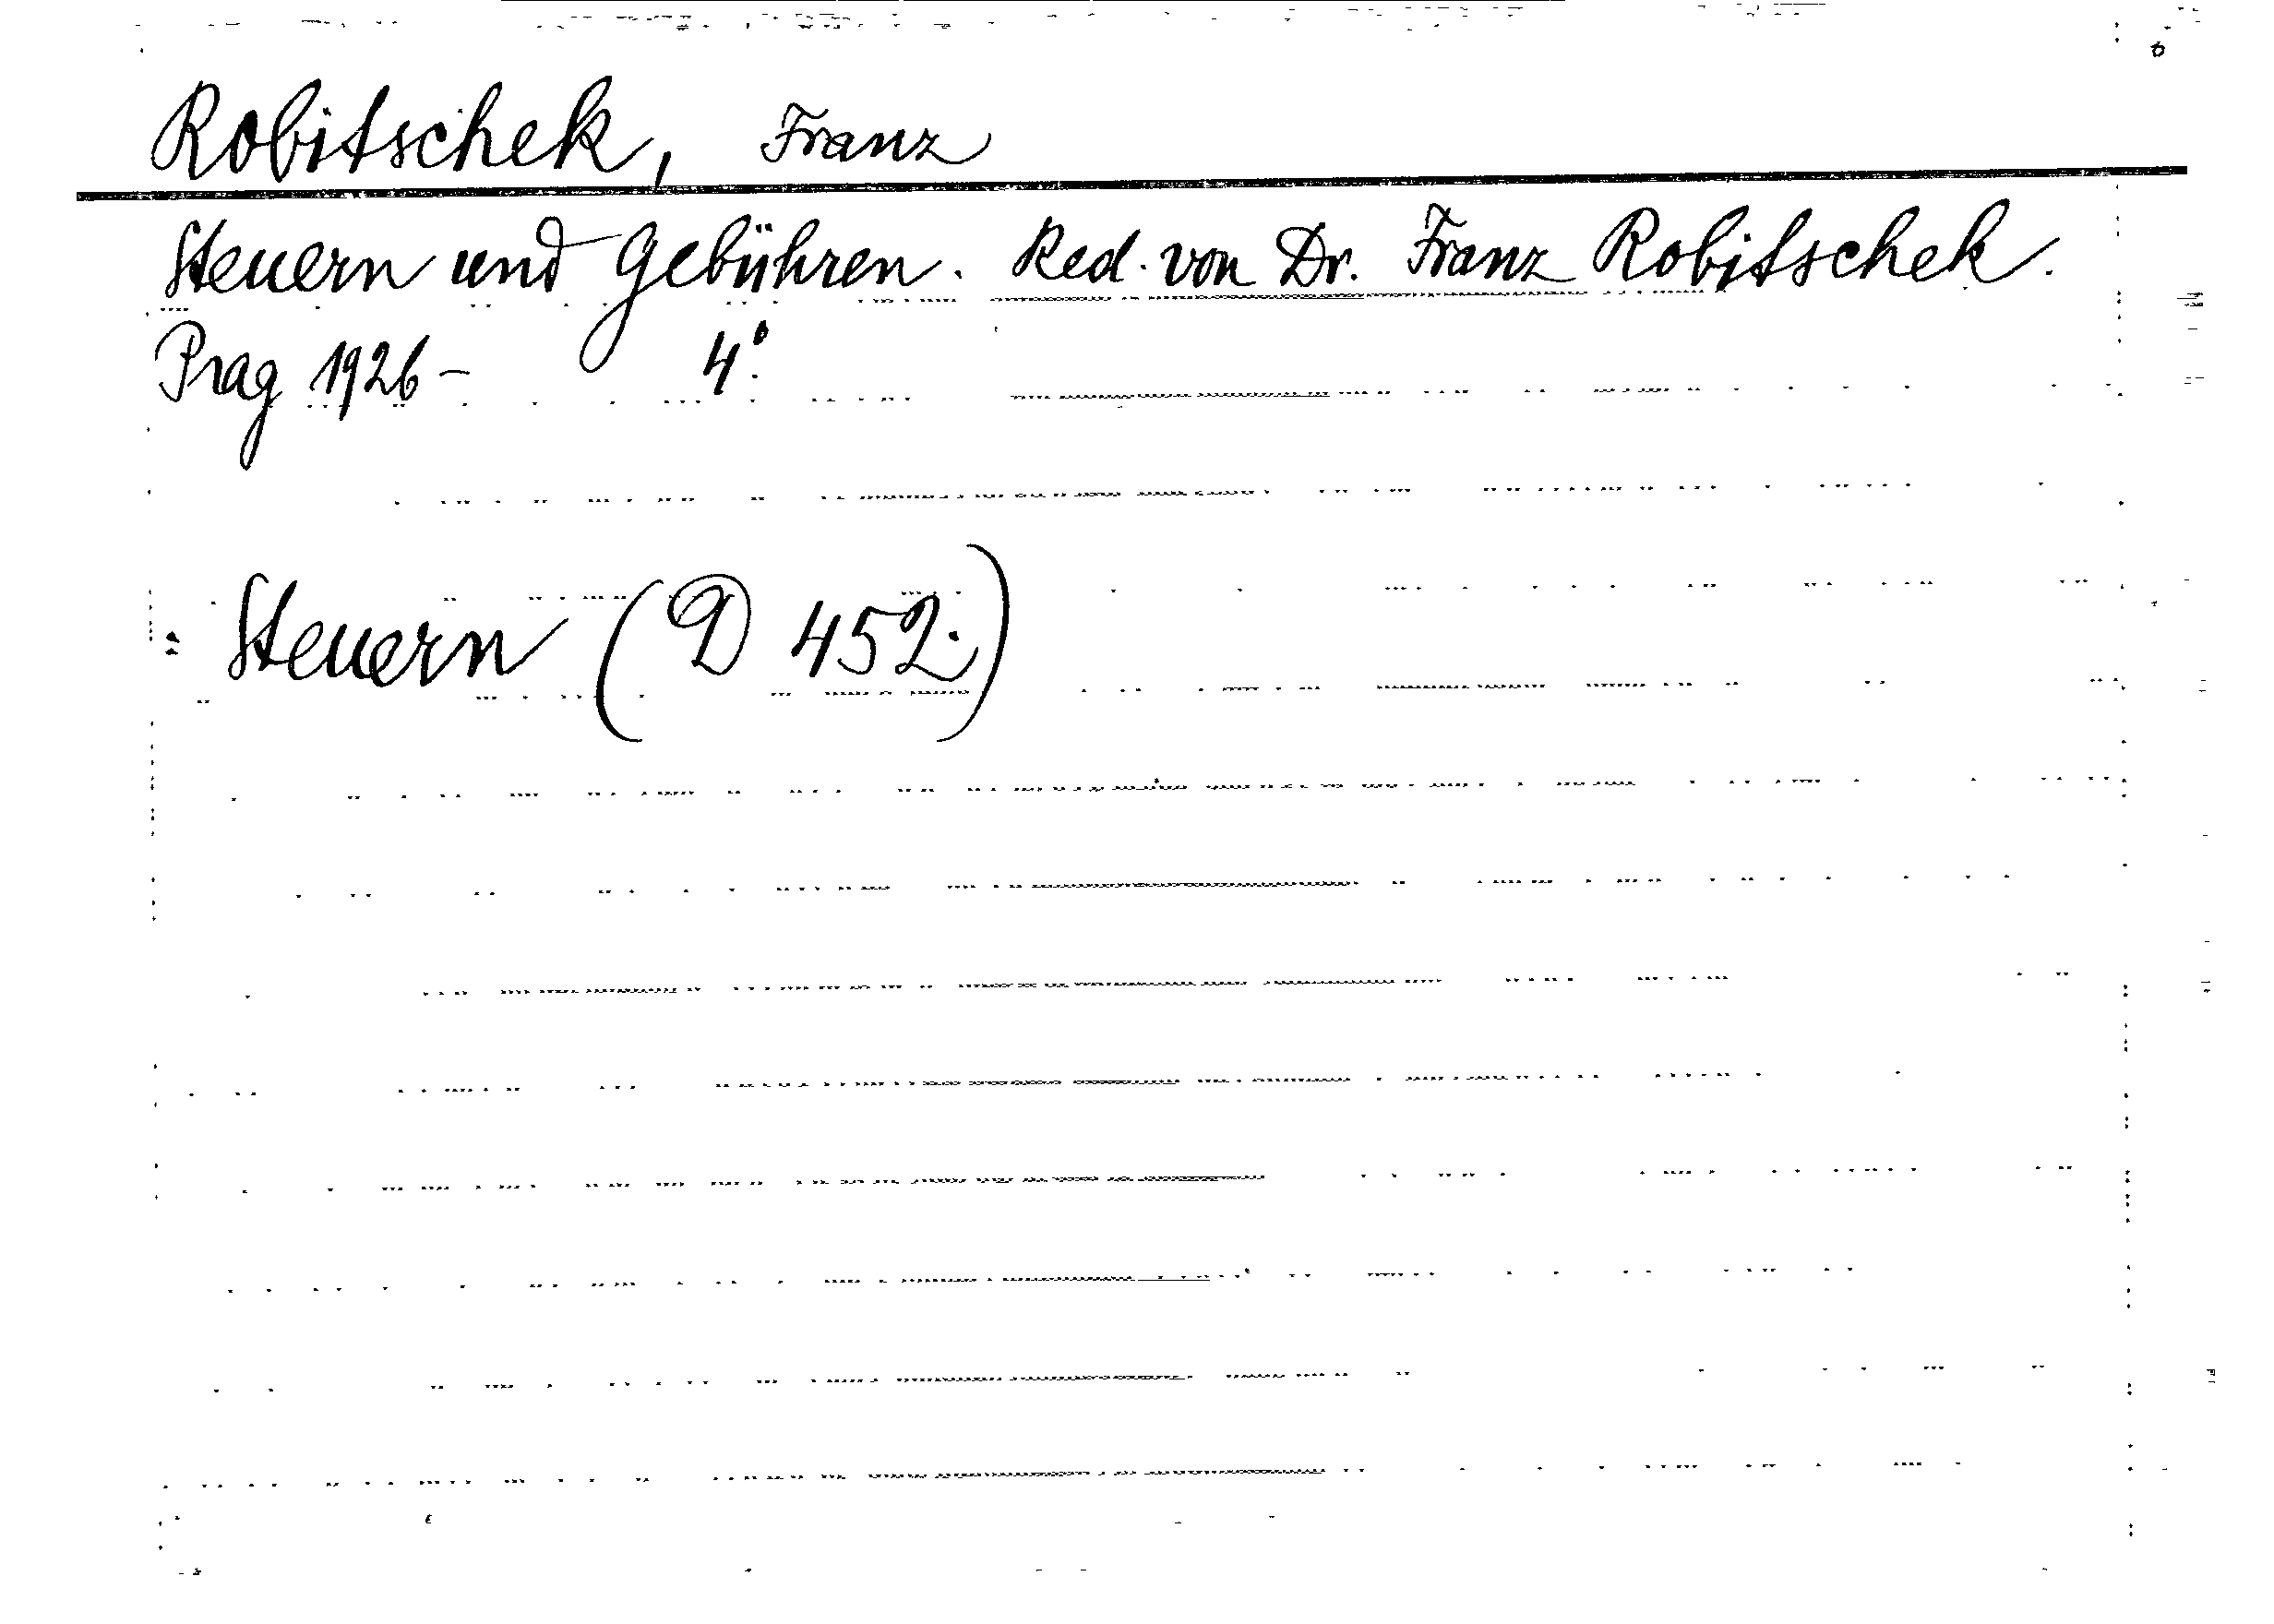 Robitschek, Franz
Steuern und Gebühren. Red. von Dr. Franz Robitschek.
Prag 1926- 4°.
: Steuern (D 452.)